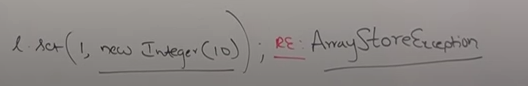 l.set(1, new Integer(10)); RE: ArrayStoreException